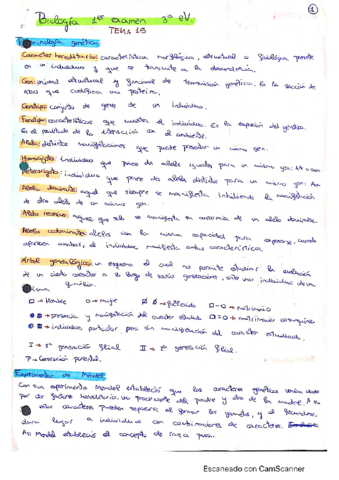 ①
Biología 1er examen 3ª eV.
TEMA 15
Terminología genética
Carácter hereditario: características morfológica, estructural o fisiológica presente
en un individuo y que se transmite a la descendencia.
Gen: unidad estructural y funcional de transmisión genética. Es la sección de
ADN que codifica una proteína.
Genotipo: conjunto de genes de un individuo.
Fenotipo: características que muestra el individuo. Es la expresión del genotipo.
Es el resultado de la interacción con el ambiente.
Alelo: distintas manifestaciones que puede presentar un gen.
Homocigoto: individuo que posee dos alelos iguales para un mismo gen: AA o aa
Heterocigoto: individuo que posee dos alelos distintos para un mismo gen: Aa
Alelo dominante: aquel que siempre se manifiesta inhibiendo la manifestación
de otro alelo de un mismo gen.
Alelo recesivo: aquel que sólo se manifiesta en ausencia de un alelo dominante.
Alelos codominantes: alelos con la misma capacidad para expresarse, cuando
aparecen ambos, el individuo manifiesta ambas características.
Árbol genealógico: un esquema el cual nos permite estudiar la evolución
de un cierto carácter a lo largo de varias generaciones, entre los individuos de una
familia.
□ → Hombre ○ → mujer → fallecido □-○ → matrimonio
→ presencia y manifestación del carácter estudiado □=○ → matrimonio consanguíneo
→ individuo portador, pero sin manifestación del carácter estudiado.
I → 1ª generación filial II → 2ª generación filial.
P → Generación parental.
Experimentos de Mendel
Con sus experimentos Mendel estableció que los caracteres genéticos venían dados
por dos factores hereditarios: uno procedente del padre y otro de la madre. A su
estos caracteres pueden separarse al formar los gametos, y al fecundarse,
daran lugar a individuos con combinaciones de caracteres.
Así Mendel estableció el concepto de raza pura.
Escaneado con CamScanner